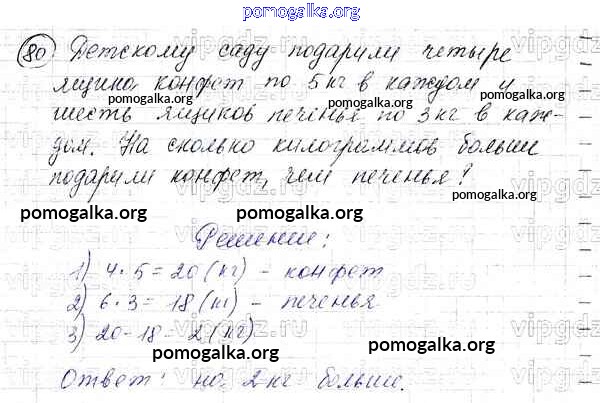 pomogalka.org
80 Детскому саду подарили четыре
ящика конфет по 5 кг в каждом и
pomogalka.org pomogalka.org
шесть ящиков печенья по 3 кг в каж-
дом. На сколько килограммов больше
подарили конфет, чем печенья?
pomogalka.org pomogalka.org pomogalka.org
Решение:
1) 4·5=20 (кг) - конфет
pomogalka.org pomogalka.org
2) 6·3=18 (кг) - печенья
3) 20-18=2 (кг)
pomogalka.org pomogalka.org
Ответ: на 2 кг больше.
pomogalka.org